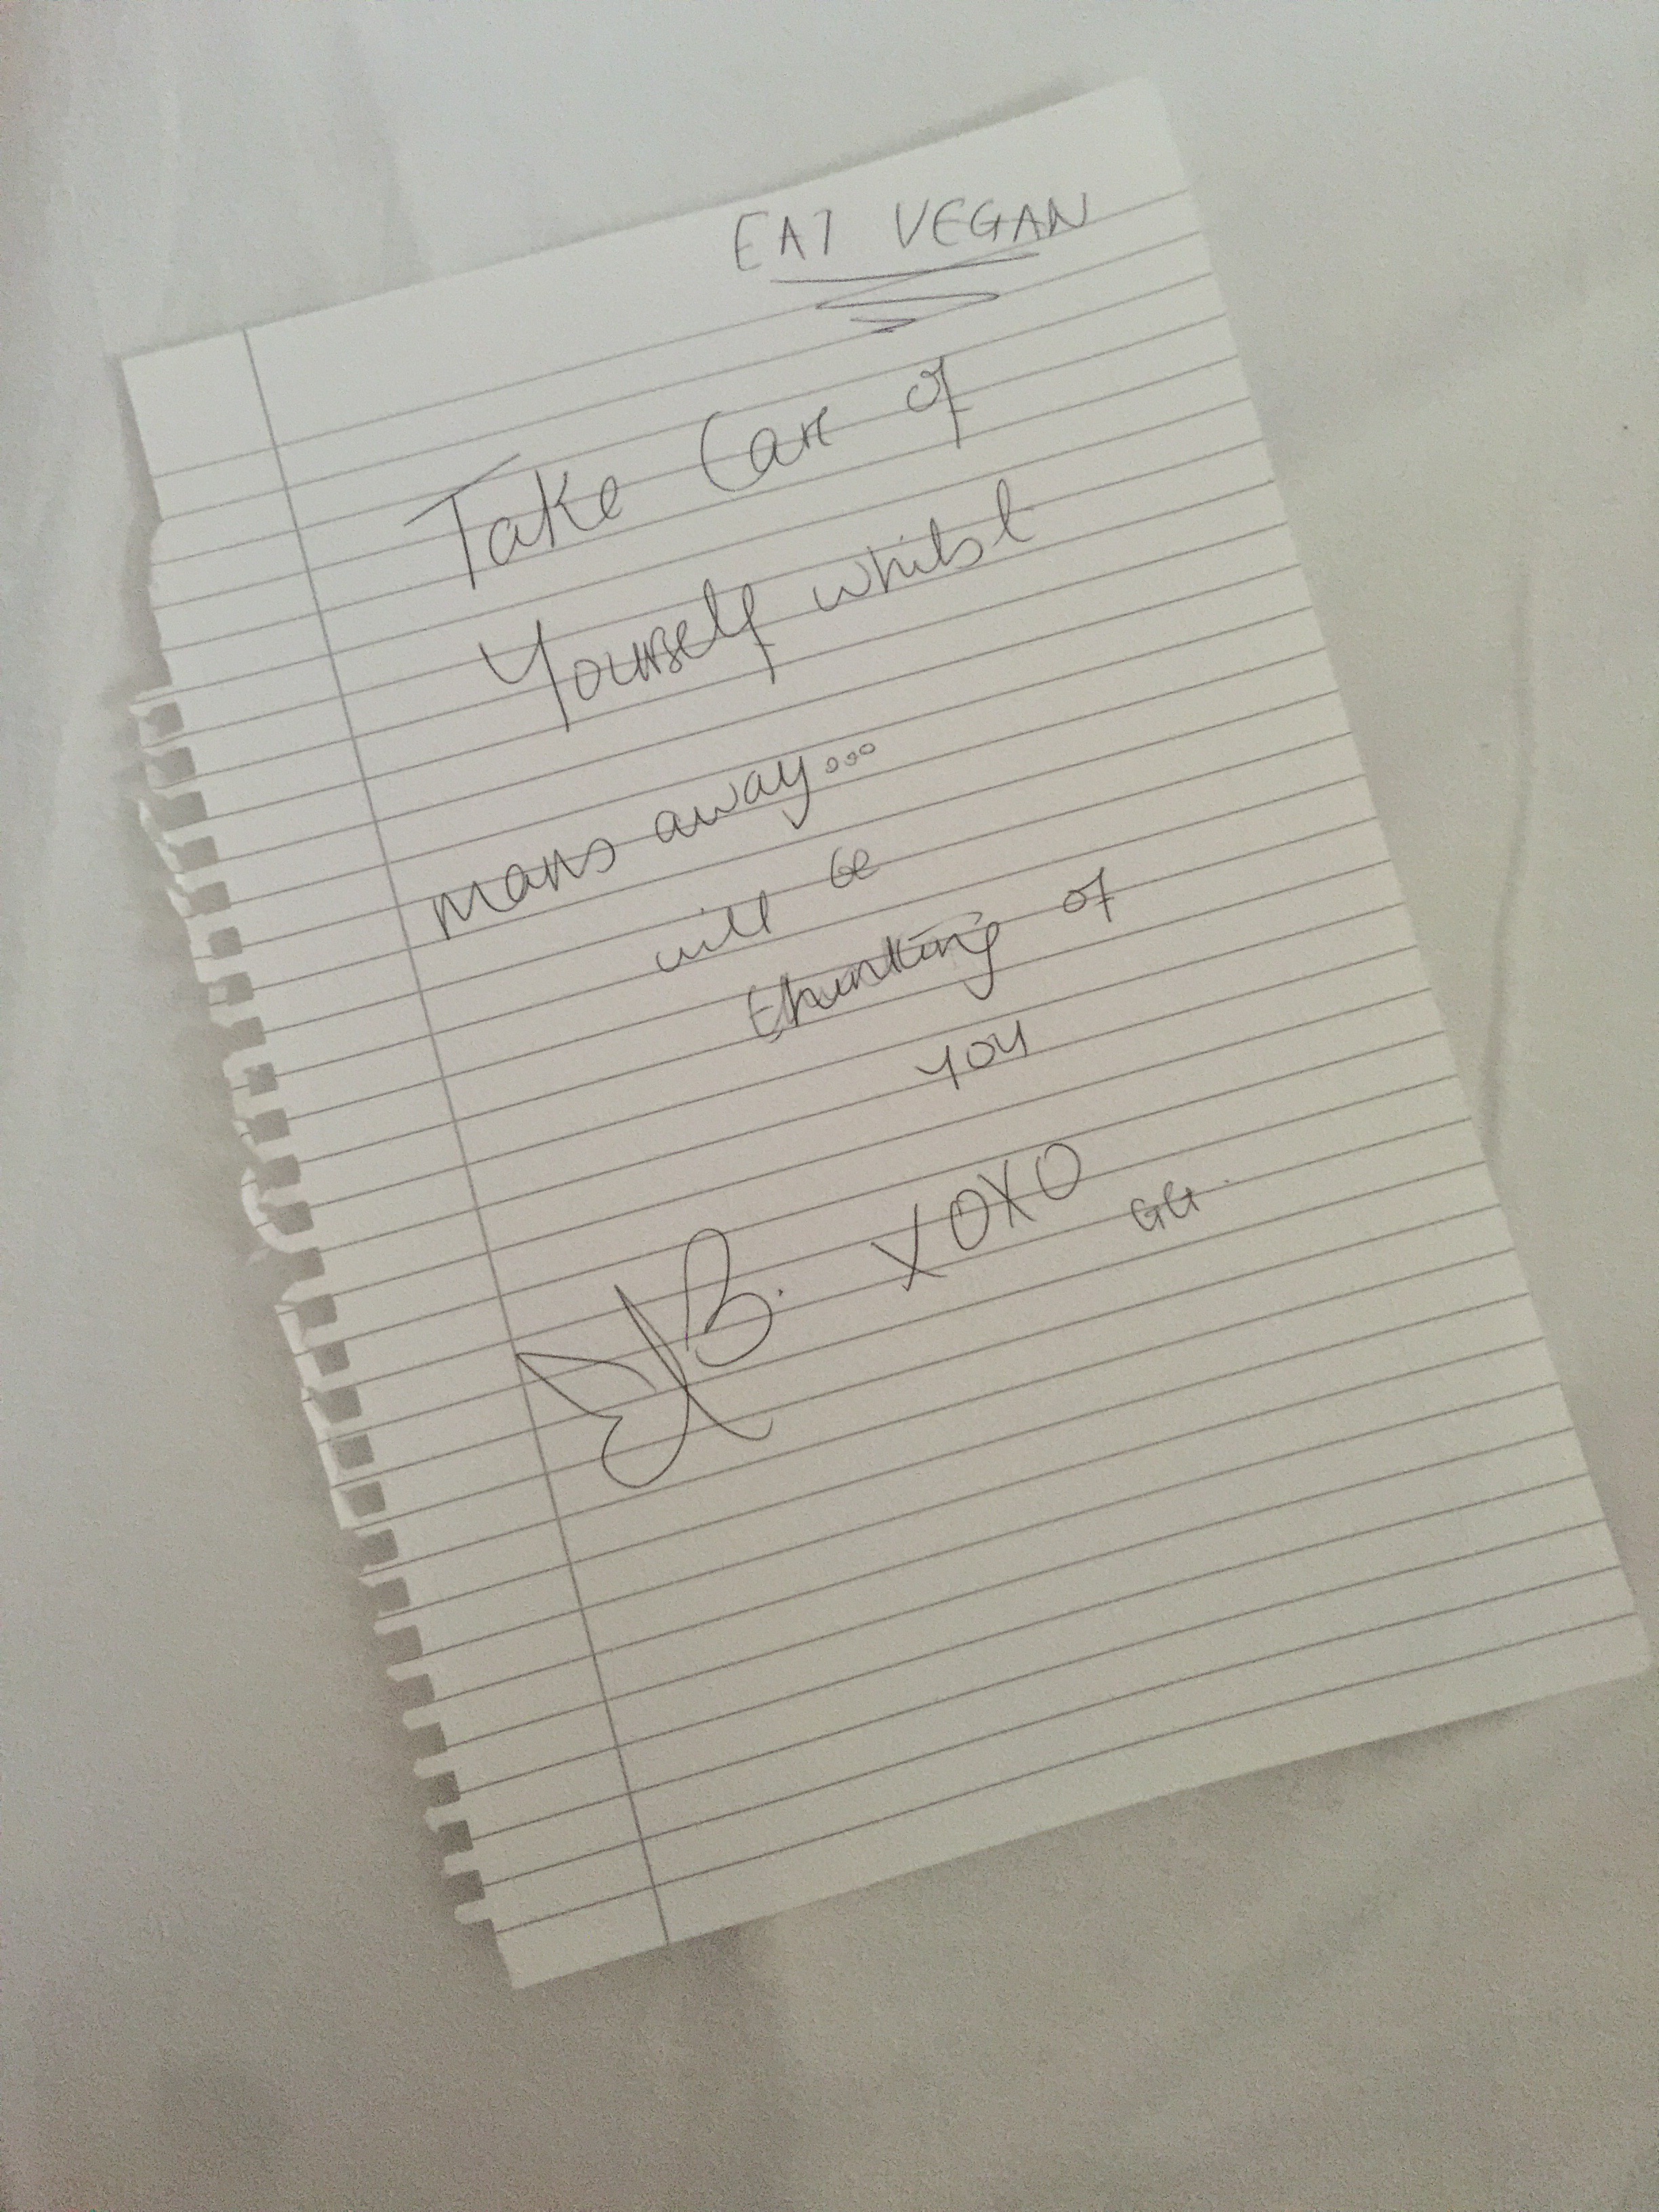 EAT VEGAN
Take Care of
Yourself whilst
mans away...
will be
thinking of
you
B. XOXO
GG.